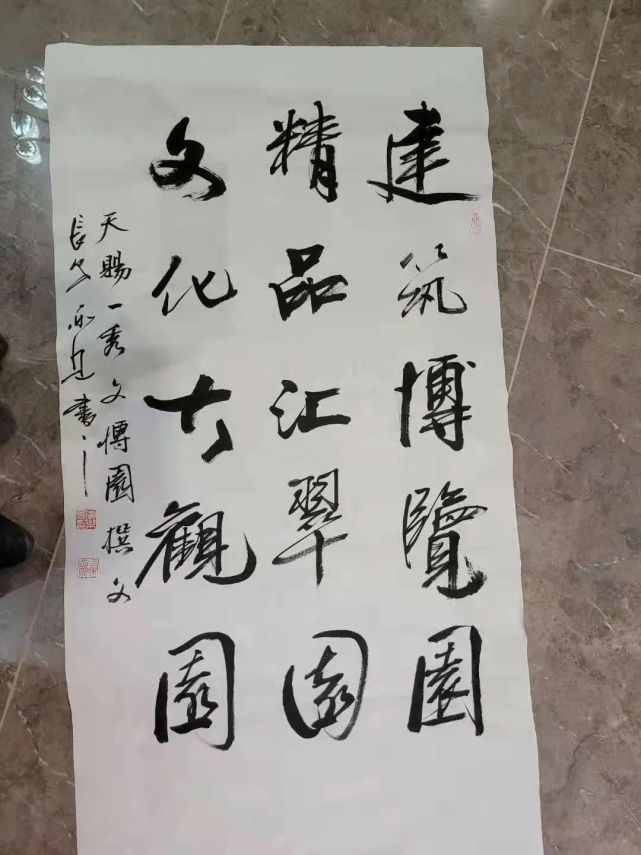 建筑博覽園
精品汇翠园
文化大觀園
天賜一秀文博園撰文
長安
書